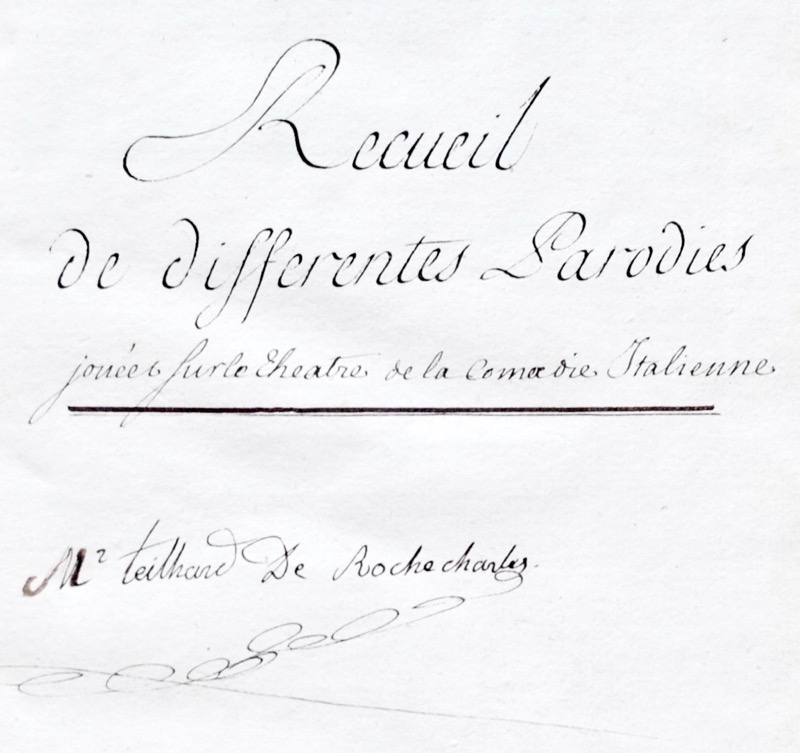 Recueil
de differentes Parodies
jouées sur le theatre de la Comœdie Italienne
Mr teilhard De Rochecharles.